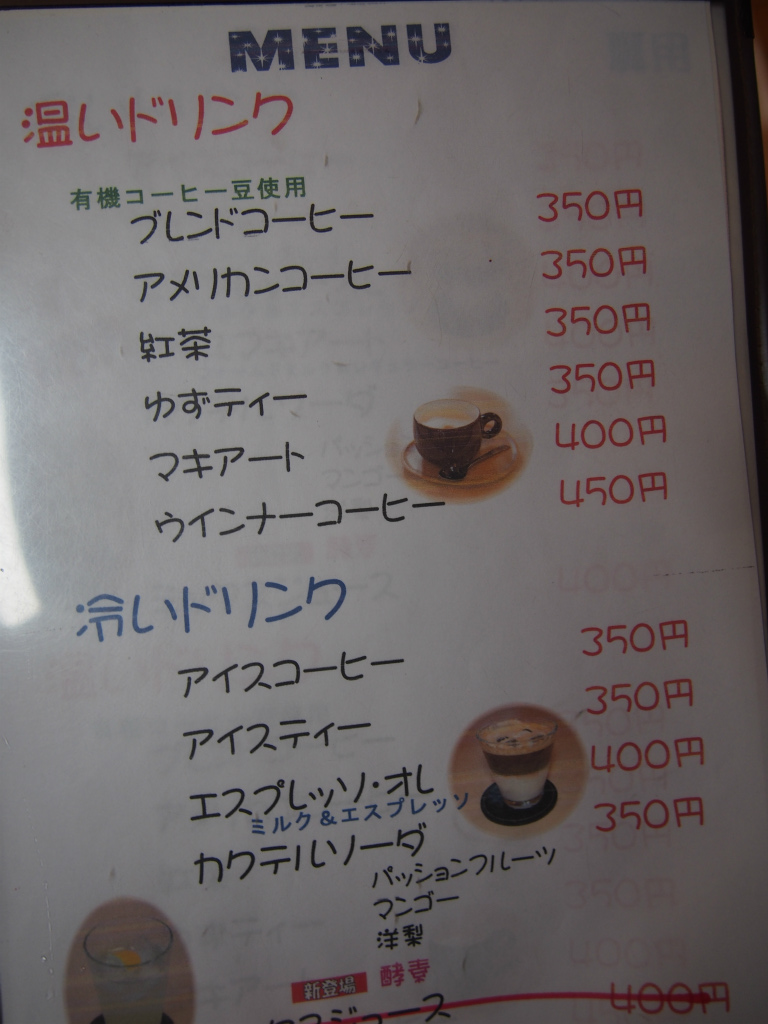 MENU
温いドリンク
有機コーヒー豆使用
ブレンドコーヒー 350円
アメリカンコーヒー 350円
紅茶 350円
ゆずティー 350円
マキアート 400円
ウインナーコーヒー 450円
冷いドリンク
アイスコーヒー 350円
アイスティー 350円
エスプレッソ・オレ 400円
ミルク&エスプレッソ
カクテルソーダ 350円
パッションフルーツ
マンゴー
洋梨
新登場 酵素
ジュース 400円